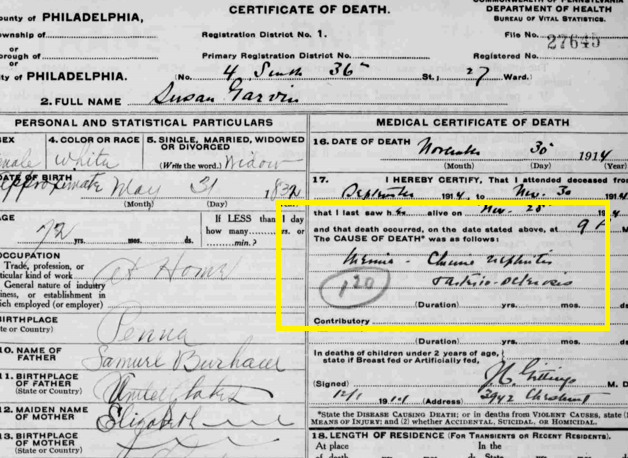 COMMONWEALTH OF PENNSYLVANIA
CERTIFICATE OF DEATH.
DEPARTMENT OF HEALTH
BUREAU OF VITAL STATISTICS.
ounty of PHILADELPHIA,
ownship of
Registration District No. 1.
File No. 27645
or
orough of
Primary Registration District No.
Registered No.
or
ity of PHILADELPHIA.
(No. 4 South 36th St.; 27 Ward.)
2. FULL NAME Susan Garvin
PERSONAL AND STATISTICAL PARTICULARS
MEDICAL CERTIFICATE OF DEATH
SEX
4. COLOR OR RACE
5. SINGLE, MARRIED, WIDOWED
OR DIVORCED
(Write the word.) Widow
male
White
16. DATE OF DEATH November 30 1914
(Month) (Day) (Year)
DATE OF BIRTH
Approximate May 31
(Month) (Day)
17. I HEREBY CERTIFY, That I attended deceased from
September 1914, to Nov. 30 1914
that I last saw h er alive on Nov. 28 1914
and that death occurred, on the date stated above, at 9 P M.
The CAUSE OF DEATH* was as follows:
Uremia - Chronic Nephritis
Arterio-Sclerosis
120
(Duration) yrs. mos. ds.
Contributory
(Duration) yrs. mos. ds.
AGE
72 yrs. mos. ds.
If LESS than 1 day
how many hrs. or
min.?
OCCUPATION
Trade, profession, or
ticular kind of work
General nature of industry
iness, or establishment in
ich employed (or employer)
At Home
BIRTHPLACE
te or Country)
Penna
10. NAME OF
FATHER
Samuel
11. BIRTHPLACE
OF FATHER
(State or Country)
United States
12. MAIDEN NAME
OF MOTHER
Elizabeth
13. BIRTHPLACE
OF MOTHER
In deaths of children under 2 years of age,
state if Breast fed or Artificially fed,
(Signed) J C Gittings M. D.
12/1 191 (Address) 3942 Chestnut
*State the DISEASE CAUSING DEATH; or in deaths from VIOLENT CAUSES, state (1)
MEANS OF INJURY; and (2) whether ACCIDENTAL, SUICIDAL, OR HOMICIDAL.
18. LENGTH OF RESIDENCE (FOR TRANSIENTS OR RECENT RESIDENTS).
At place
In the